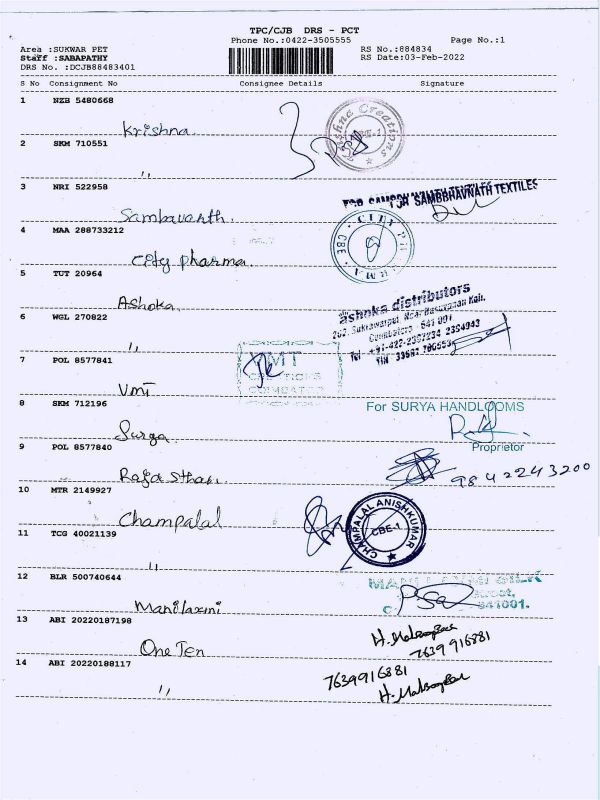 TPC/CJB DRS - PCT
Phone No.:0422-3505555
Page No.:1
Area :SUKWAR PET
Staff :SABAPATHY
DRS No. :DCJB88483401
RS No.:884834
RS Date:03-Feb-2022
S No Consignment No Consignee Details Signature
1 NZB 5480668
Krishna
Krishna Creations
2 SKM 710551
"
3 NRI 522958
FOR SAMBBHAVNATH TEXTILES
Sambavanth.
4 MAA 288733212
CITY PHARMA
CBE
City pharma
5 TUT 20964
Ashoka
ashoka distributors
6 WGL 270822
Coimbatore - 641 001
"
7 POL 8577841
VMT
CREATIONS
COIMBATORE
Vmt
8 SKM 712196
For SURYA HANDLOOMS
Surya
Proprietor
9 POL 8577840
Rajasthan
9842243200
10 MTR 2149927
Champalal
CHAMPALAL ANISHKUMAR
CBE-1
11 TCG 40021139
"
12 BLR 500740644
641001.
Manilaxmi
13 ABI 20220187198
One Ten
7639 916881
14 ABI 20220188117
7639916881
"